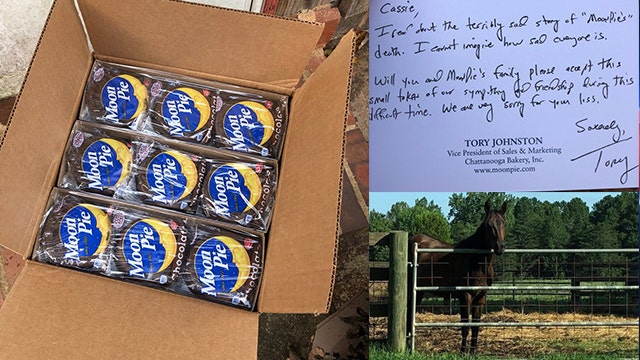 Moon Pie
Moon Pie
Moon Pie chocolate
Moon Pie
Moon Pie
Moon Pie chocolate
Moon Pie
Moon Pie chocolate
Moon Pie
Cassie,
I read about the terribly sad story of "MoonPie's"
death. I cannot imagine how sad everyone is.
Will you and MoonPie's family please accept this
small token of our sympathy and friendship during this
difficult time. We are very sorry for your loss.
Sincerely,
Tory
TORY JOHNSTON
Vice President of Sales & Marketing
Chattanooga Bakery, Inc.
www.moonpie.com